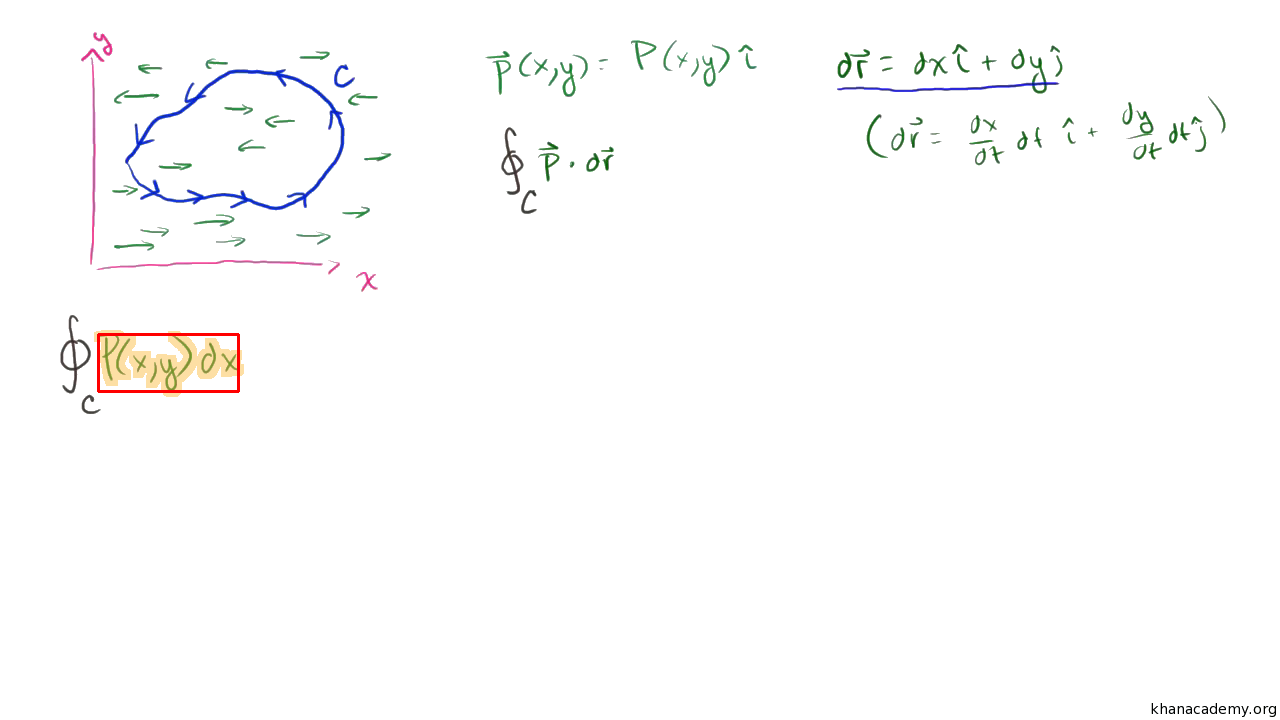 y
C
x
p⃗(x,y) = P(x,y) î
dr⃗ = dx î + dy ĵ
(dr⃗ = dx/dt dt î + dy/dt dt ĵ)
∮_C p⃗ · dr⃗
∮_C P(x,y) dx
khanacademy.org